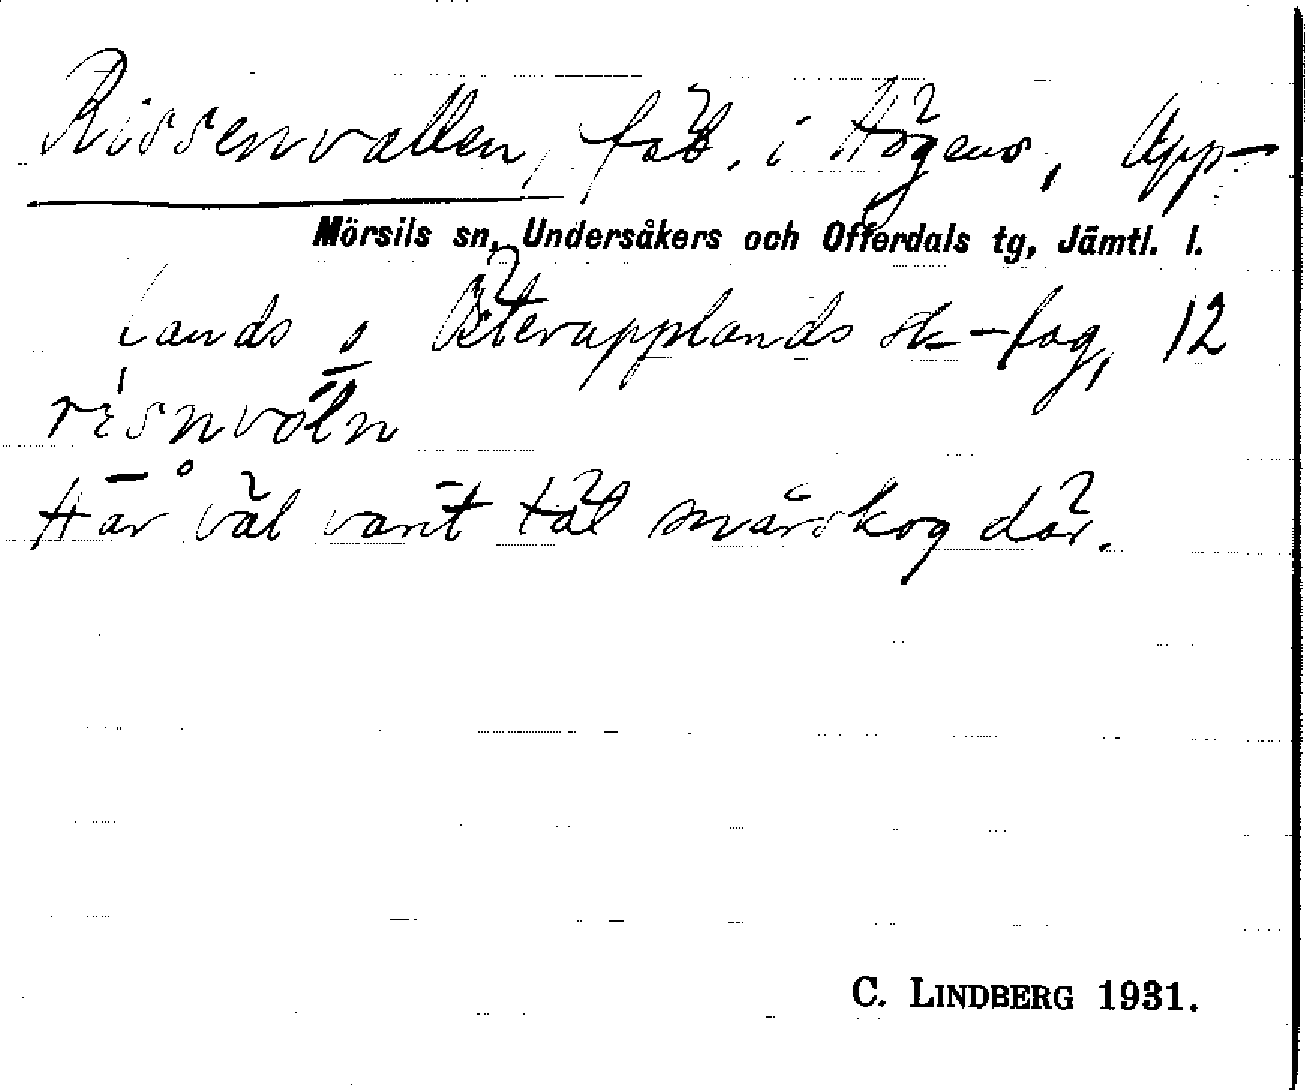 Rissenvallen, fäb. i Högens, Upp-
Mörsils sn, Undersåkers och Offerdals tg, Jämtl. l.
lands o Österupplands sk-lag, 12
risnvóln
Har väl varit tät snårskog där.
C. LINDBERG 1931.